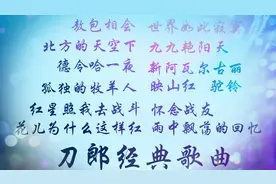 敖包相会 世界如此寂寞
北方的天空下 九九艳阳天
德令哈一夜 新阿瓦尔古丽
孤独的牧羊人 映山红 驼铃
红星照我去战斗 怀念战友
花儿为什么这样红 雨中飘荡的回忆
刀郎经典歌曲